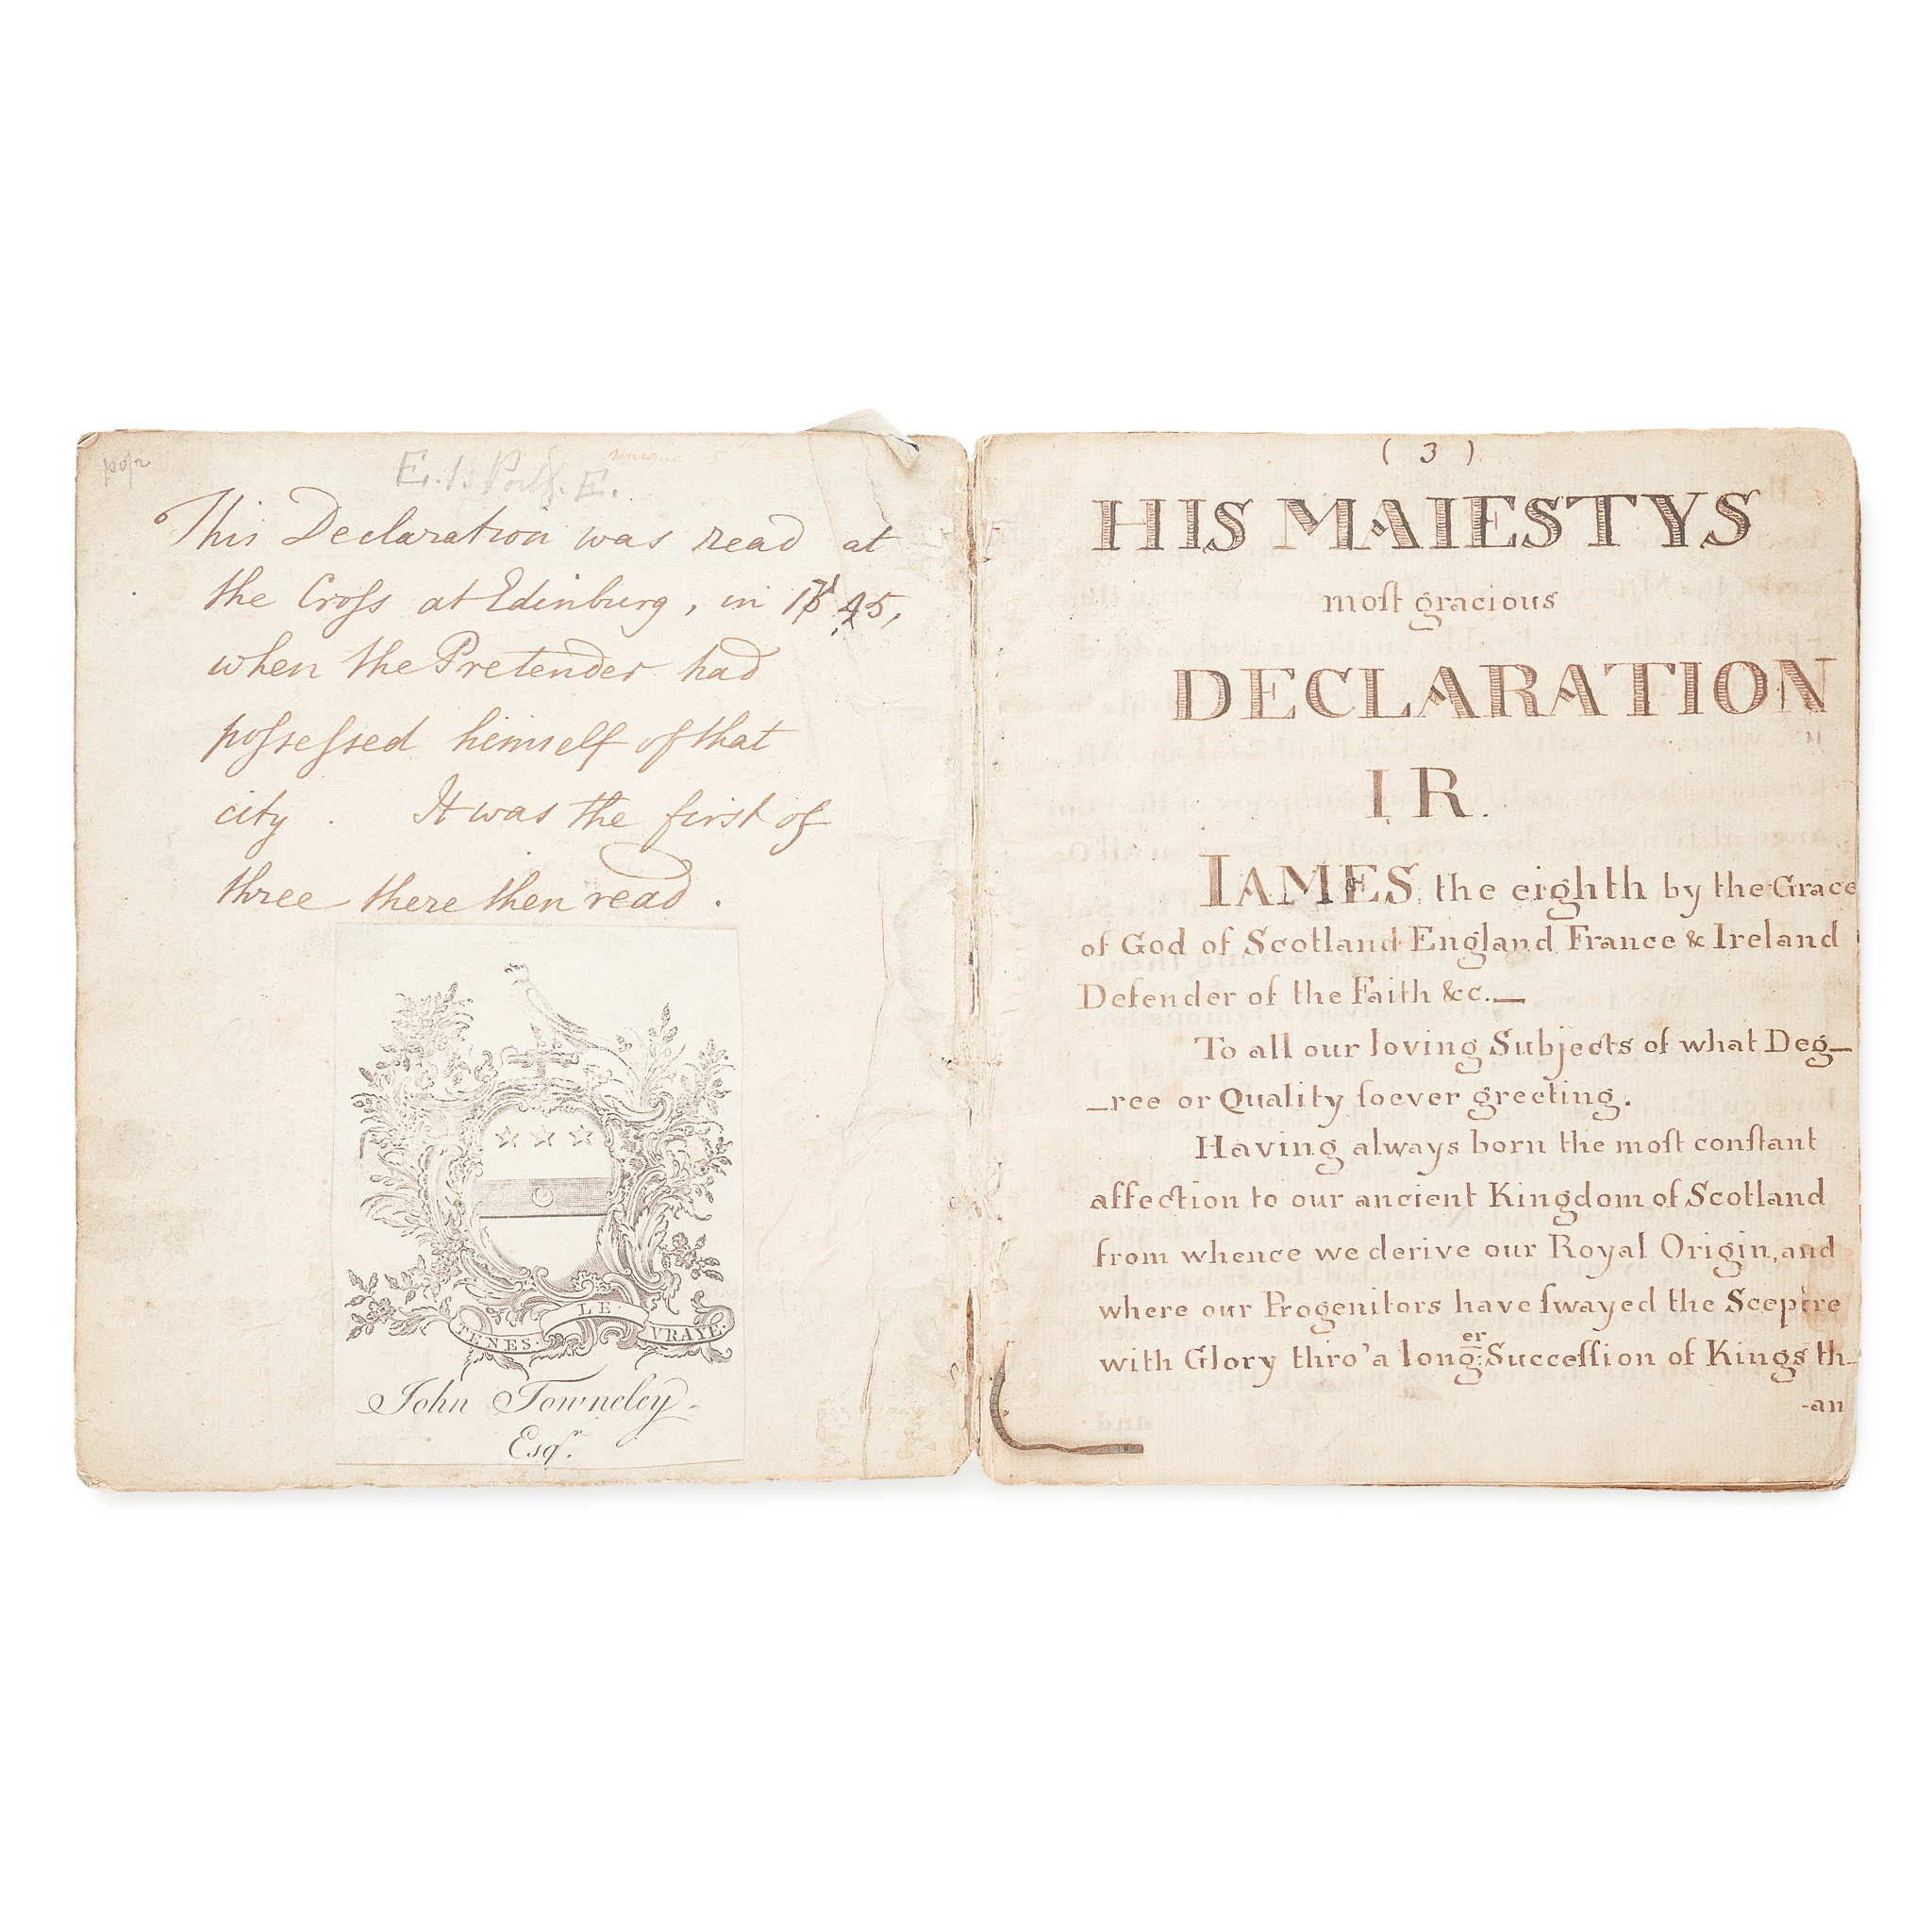 This Declaration was read at
the Croſs at Edinburg, in 1745,
when the Pretender had
poſseſsed himself of that
city. It was the first of
three there then read.
TENES. LE. VRAYE.
John Towneley
Esqr.
( 3 )
HIS MAIESTYS
moſt gracious
DECLARATION
I R.
IAMES the eighth by the Grace
of God of Scotland England France & Ireland
Defender of the Faith &c.—
To all our loving Subjects of what Deg—
—ree or Quality ſoever greeting.
Having always born the moſt conſtant
affection to our ancient Kingdom of Scotland
from whence we derive our Royal Origin, and
where our Progenitors have ſwayed the Sceptre
with Glory thro' a longer Succeſſion of Kings th-
-an